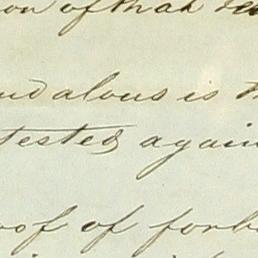 on of that
ndalous is th
tested again
oof of forb